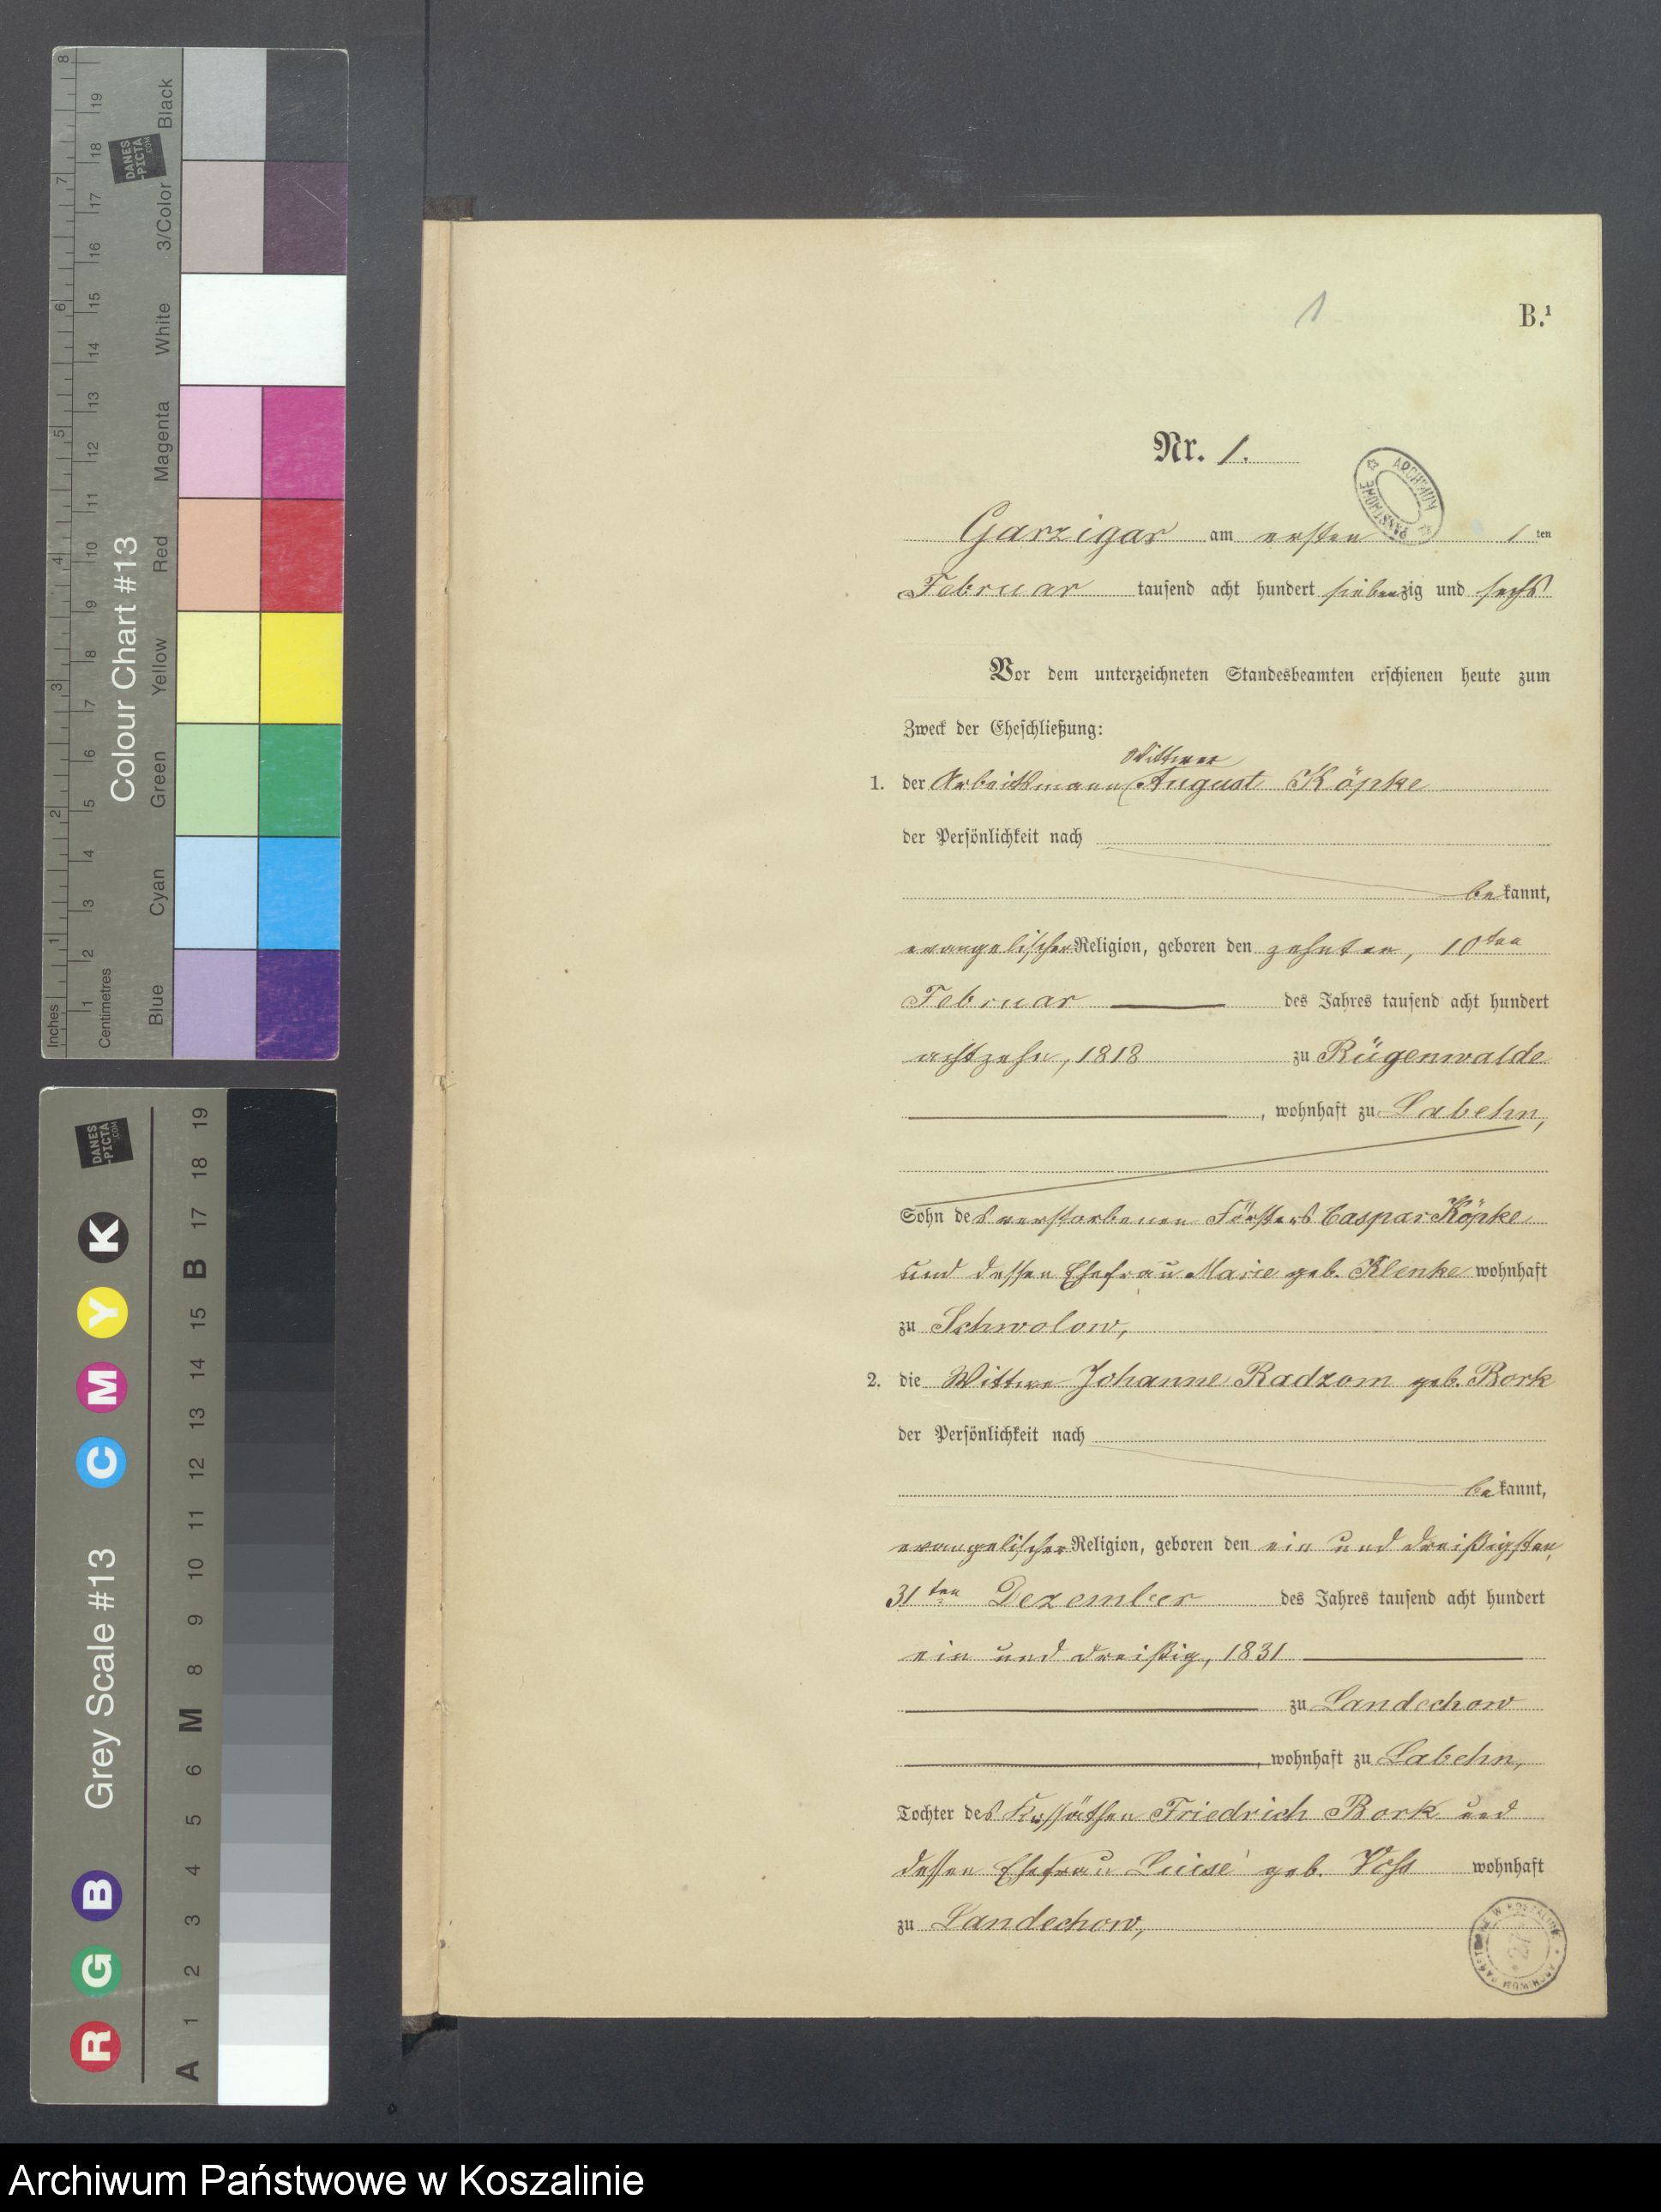 1
B.¹
Nr. 1.
ARCHIWUM PAŃSTWOWE
Garzigar am ersten 1ten
Februar tausend acht hundert siebenzig und sechs
Vor dem unterzeichneten Standesbeamten erschienen heute zum
Zweck der Eheschließung:
Wittwer
1. der Arbeitsmann August Köpke
der Persönlichkeit nach
bekannt,
evangelischer Religion, geboren den zehnten, 10ten
Februar des Jahres tausend acht hundert
achtzehn, 1818 zu Rügenwalde
, wohnhaft zu Labehn,
Sohn des verstorbenen Försters Caspar Köpke
und dessen Ehefrau Marie geb. Klenke wohnhaft
zu Schwolow,
2. die Wittwe Johanne Radzom geb. Bork
der Persönlichkeit nach
bekannt,
evangelischer Religion, geboren den ein und dreißigsten,
31ten Dezember des Jahres tausend acht hundert
ein und dreißig, 1831
zu Landechow
, wohnhaft zu Labehn,
Tochter des Kossäthen Friedrich Bork und
dessen Ehefrau Luise geb. Voss wohnhaft
zu Landechow,
ARCHIWUM PAŃSTWOWE W KOSZALINIE
27
Inches
1 2 3 4 5 6 7 8
Centimetres
1 2 3 4 5 6 7 8 9 10 11 12 13 14 15 16 17 18 19
DANES
-PICTA
.COM
Colour Chart #13
Blue Cyan Green Yellow Red Magenta White 3/Color Black
DANES
-PICTA
.COM
Grey Scale #13
R G B C M Y K
A 1 2 3 4 5 6 M 8 9 10 11 12 13 14 15 B 17 18 19
Archiwum Państwowe w Koszalinie